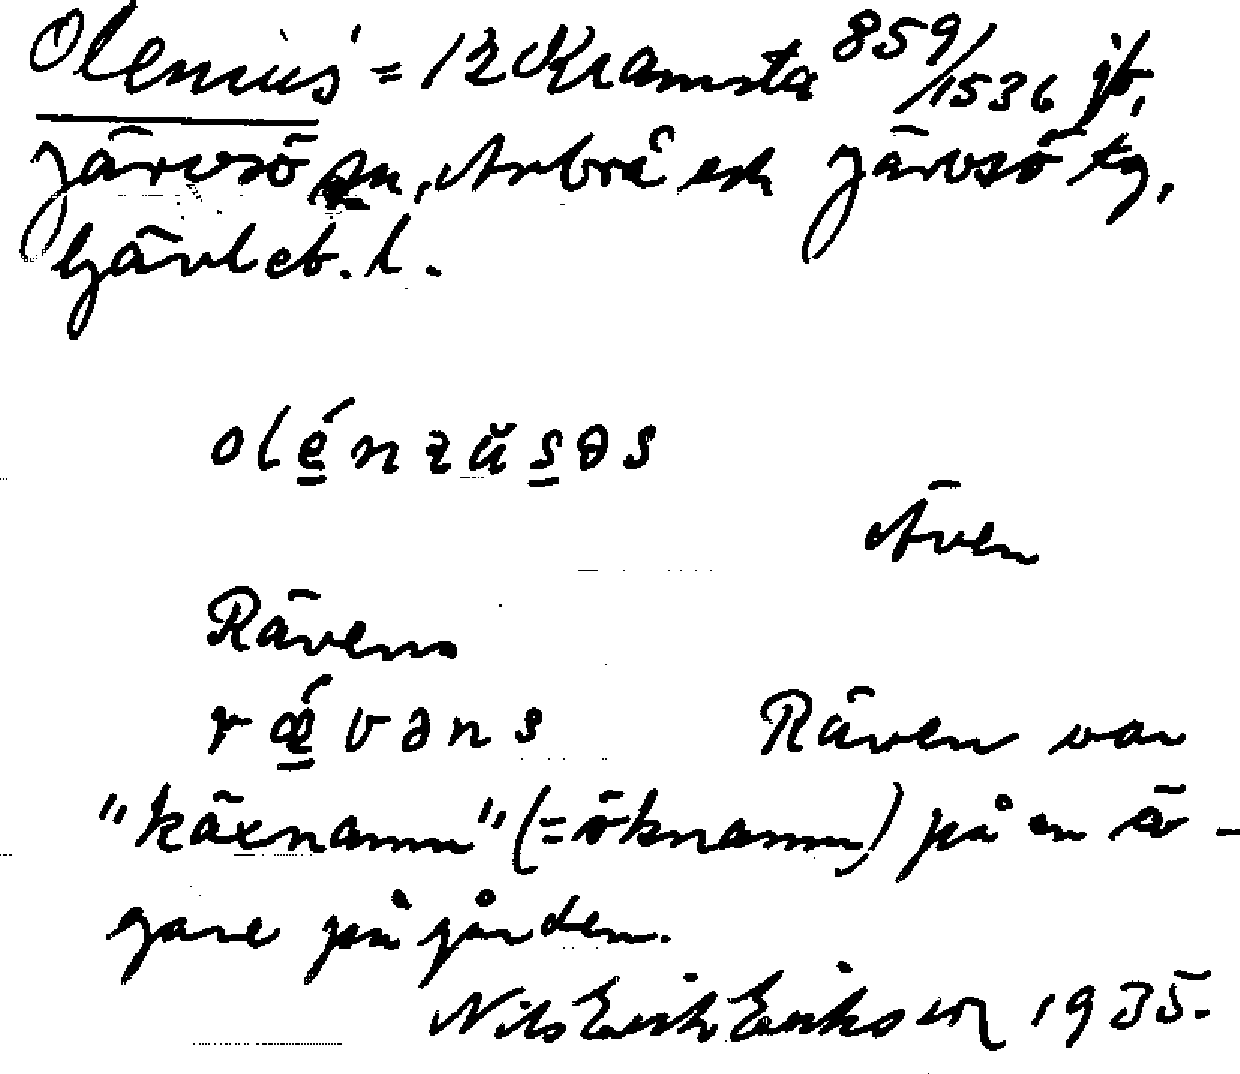 Olenius' = 12 Kramsta 859/1536 jb,
Järvsö sn, Arbrå och Järvsö tg,
Gävleb. l.
olénzŭsəs
Även
Rävens
rǽvəns Räven var
"käxnamn" (=öknamn) på en ä-
gare på gården.
Nils Erik Eriksson 1935.